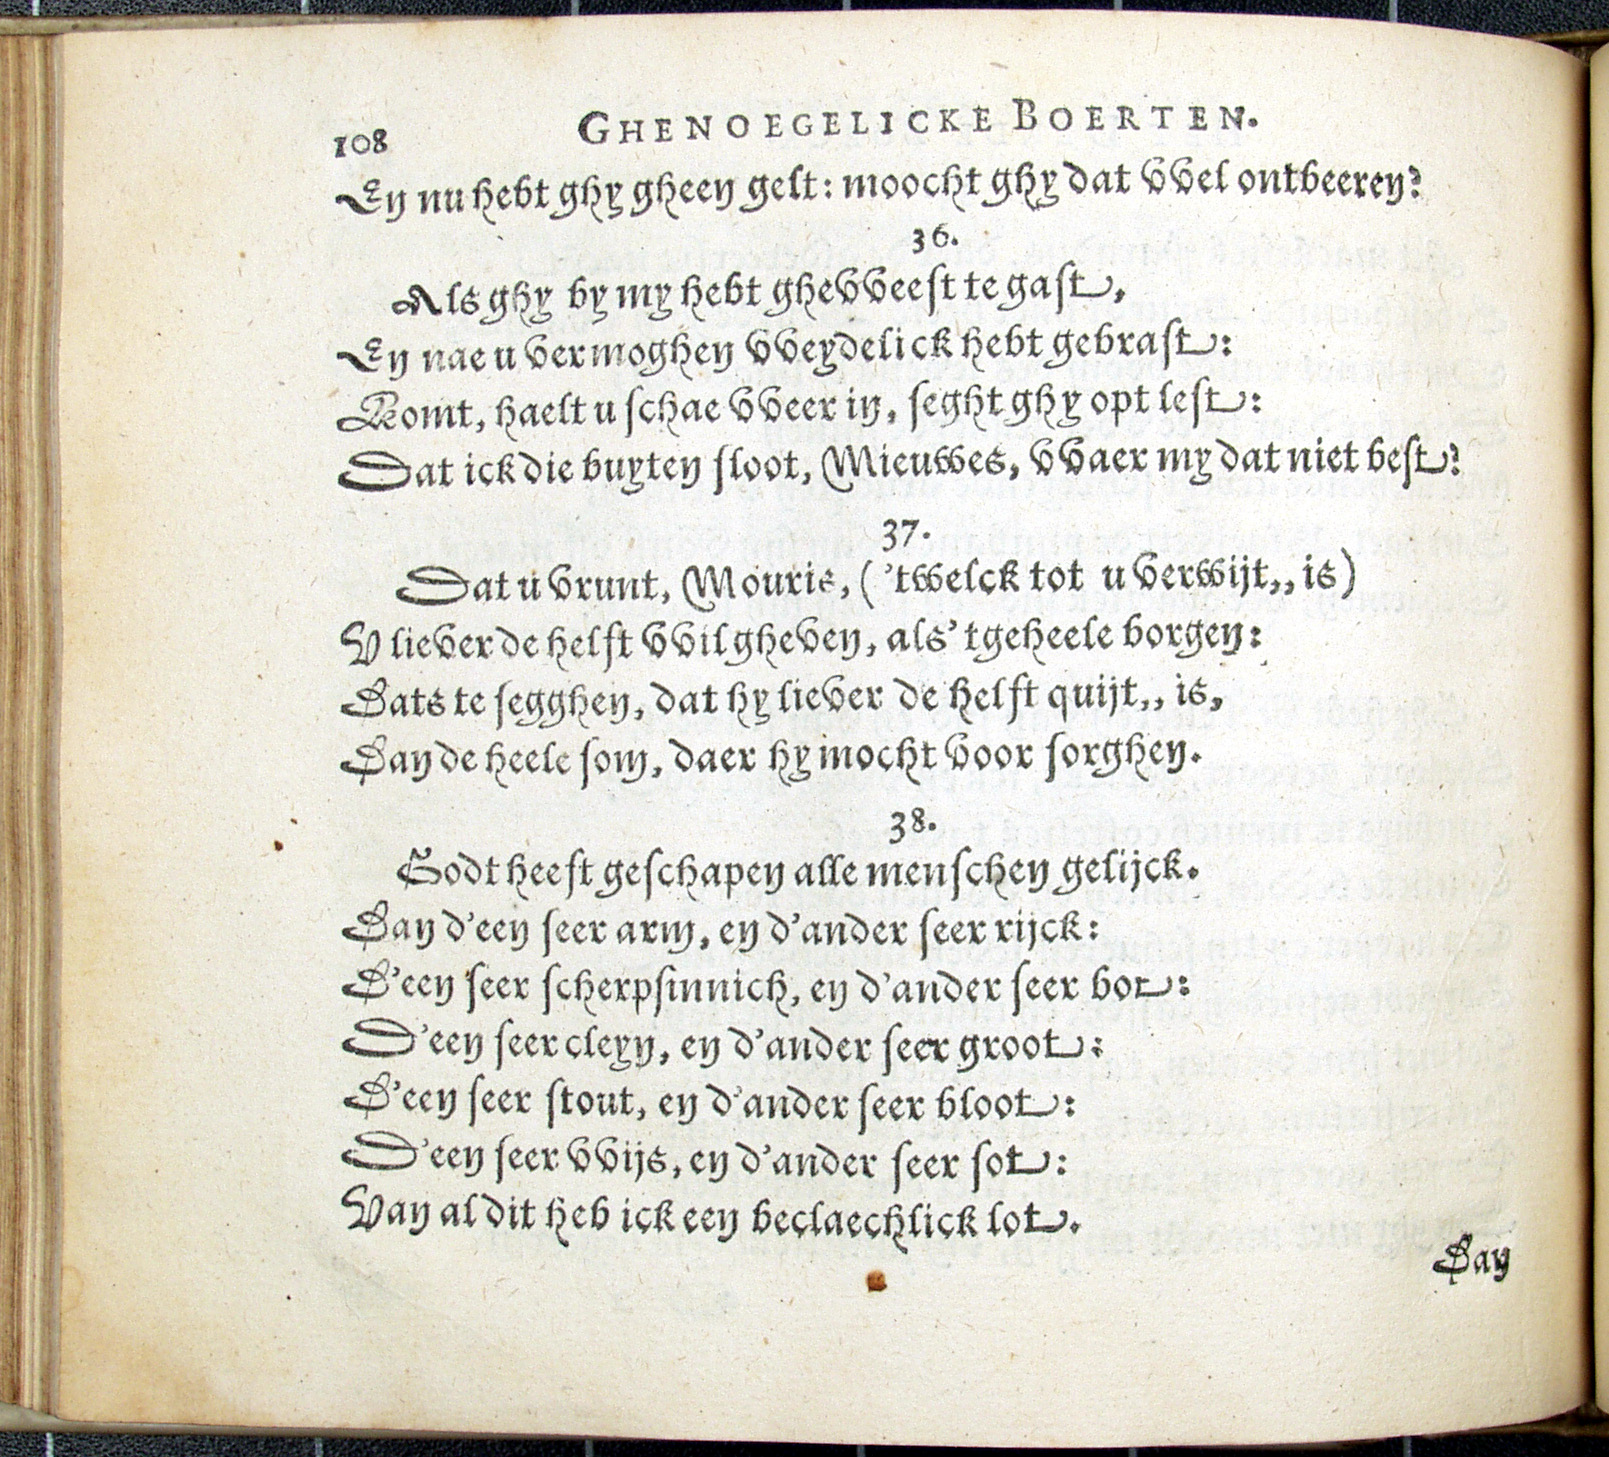 108 GHENOEGELICKE BOERTEN.
En nu hebt ghy gheen gelt: moocht ghy dat vvel ontbeeren?
36.
Als ghy by my hebt ghevveest te gast,
En nae u vermoghen vveydelick hebt gebrast:
Komt, haelt u schae vveer in, seght ghy opt lest:
Dat ick die buyten sloot, Mieuwes, vvaer my dat niet best?
37.
Dat u vrunt, Mouris, ('twelck tot u verwijt,, is)
V liever de helft vvil gheven, als 'tgeheele borgen:
Dats te segghen, dat hy liever de helft quijt,, is,
Dan de heele som, daer hy mocht voor sorghen.
38.
Godt heeft geschapen alle menschen gelijck.
Dan d'een seer arm, en d'ander seer rijck:
D'een seer scherpsinnich, en d'ander seer bot:
D'een seer cleyn, en d'ander seer groot:
D'een seer stout, en d'ander seer bloot:
D'een seer vvijs, en d'ander seer sot:
Van al dit heb ick een beclaechlick lot.
Dan